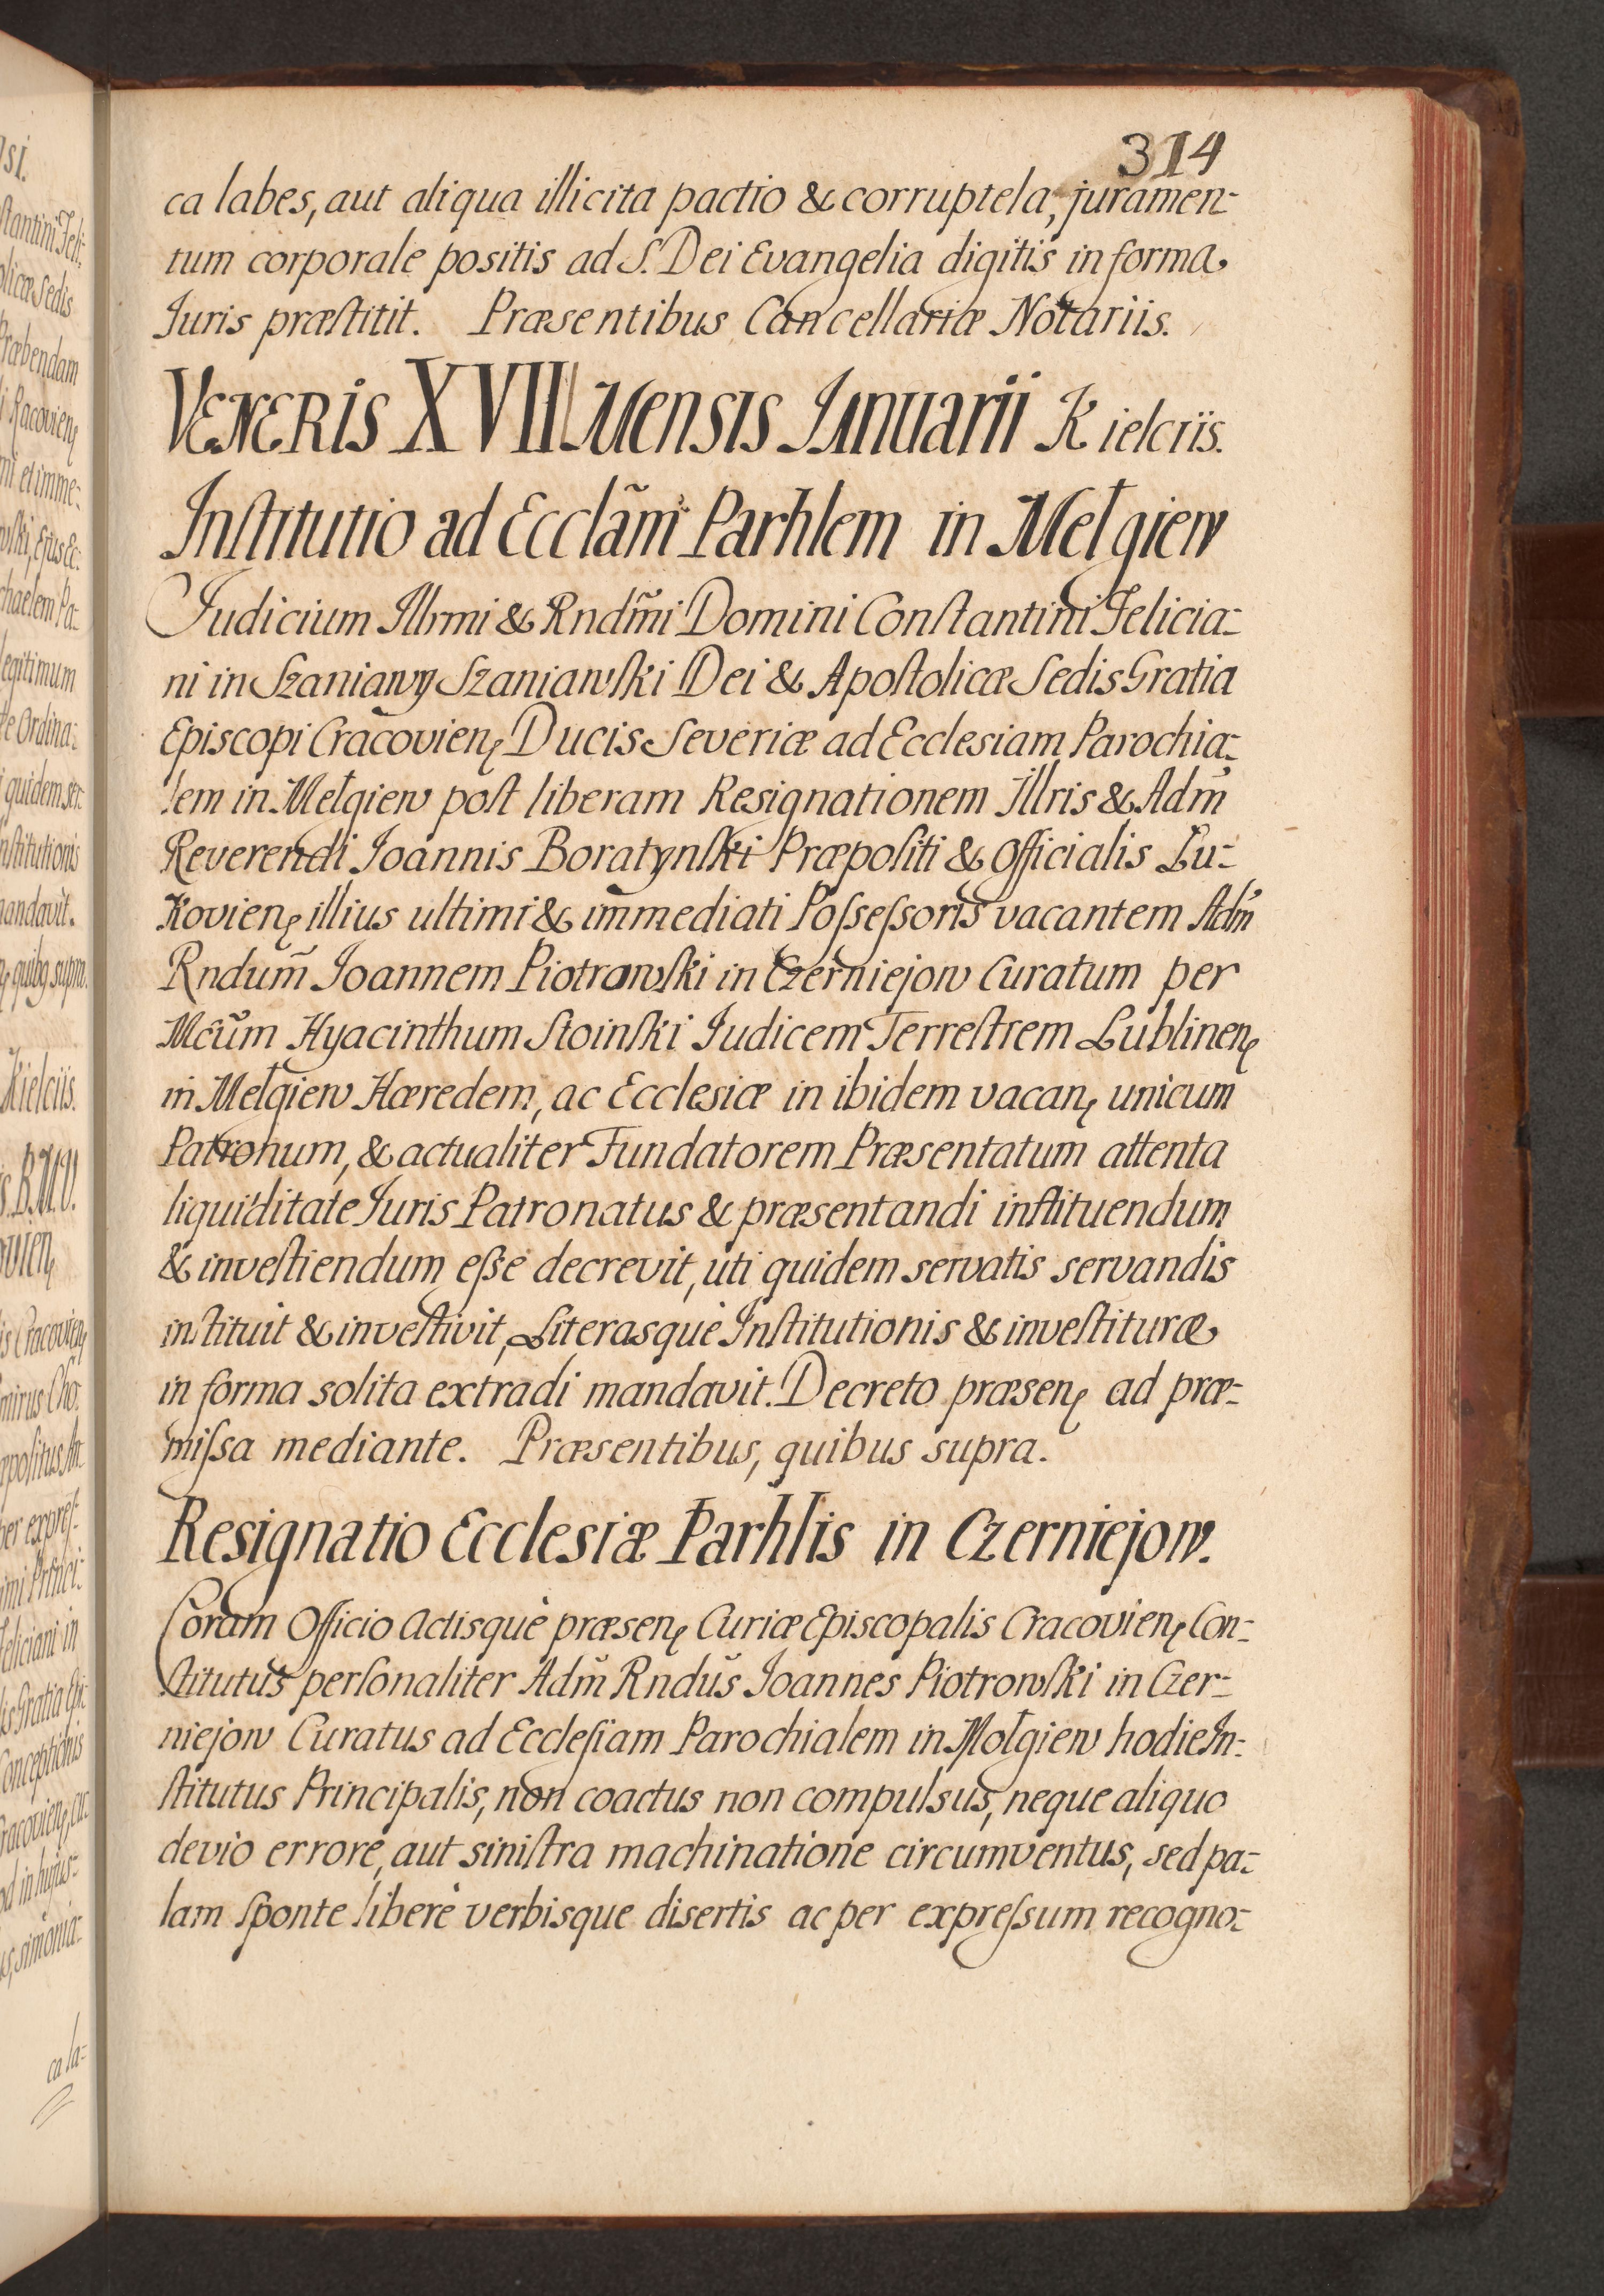 314
ca labes, aut aliqua illicita pactio & corruptela, juramen-
tum corporale positis ad S. Dei Evangelia digitis in forma
Juris præſtitit. Præsentibus Cancellariæ Notariis.
VENERIS XVII Mensis Januarii Kielciis.
Inſtitutio ad Ecclãm Parhlem in Mełgiew
Judicium Illrmi & Rndm̃i Domini Conſtantini Felicia-
ni in Szaniawy Szaniawſki Dei & Apoſtolicæ Sedis Gratia
Episcopi Cracovienę Ducis Severiæ ad Ecclesiam Parochia-
lem in Mełgiew poſt liberam Resignationem Illris & Adm̃
Reverendi Joannis Boratynſki Præpoſiti & Officialis Lu-
kovienę illius ultimi & immediati Poſseſsoris vacantem Adm̃
Rndum̃ Joannem Piotrowſki in Czerniejow Curatum per
Mcũm Hyacinthum Stoinſki Judicem Terreſtrem Lublinenę
in Mełgiew Hæredem, ac Ecclesiæ in ibidem vacanę unicum
Patronum, & actualiter Fundatorem Præsentatum attenta
liquiditate Juris Patronatus & præsentandi inſtituendum
& inveſtiendum eſse decrevit, uti quidem servatis servandis
inſtituit & inveſtivit, Literasquè Inſtitutionis & inveſtituræ
in forma solita extradi mandavit. Decreto præsenę ad præ-
miſsa mediante. Præsentibus, quibus supra.
Resignatio Ecclesiæ Parhlis in Czerniejow.
Coram Officio Actisquè præsenę Curiæ Episcopalis Cracovienę Con-
ſtitutus perſonaliter Adm̃ Rndus̃ Joannes Piotrowſki in Czer-
niejow Curatus ad Eccleſiam Parochialem in Mołgiew hodie In-
ſtitutus Principalis, non coactus non compulsus, neque aliquo
devio errore, aut siniſtra machinatione circumventus, sed pa-
lam ſponte liberè verbisque disertis ac per expreſsum recogno-